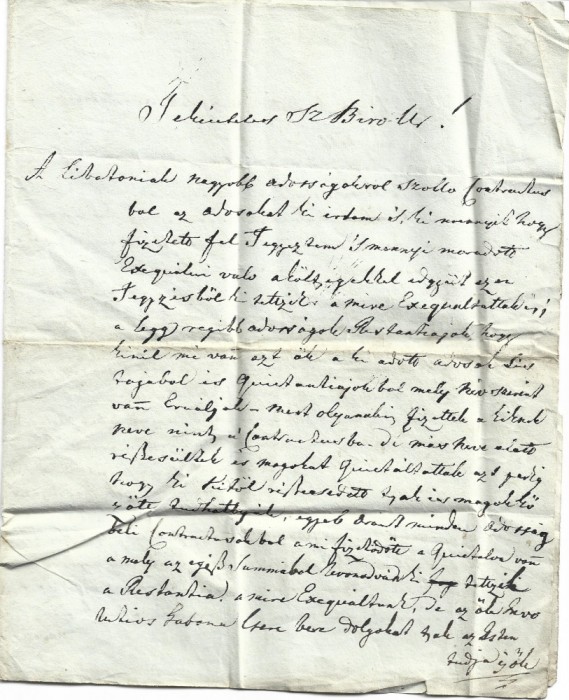 Tekintetes Sz Biro Ur!
A Libatoniak nagyobb adosságokrol szollo Contractus
bol az adosokat ki irdam is, ki mennyit hogy
fizetett fel Jegyeztem is mennyi maradott
Exequalni valo a költségekkel edgyütt ezen
Jegyzésböl ki tetszik a mire Exequaltattak is;
a legg régibb adosságok Restantiajok, hogy
kinél mi van azt ök a ki adott adosok Lis
tajabol és Quietantiajokbol mely név szerént
van - mert olyannak fizettek a kiknek
neve nintz a Contractusba de mas neve alatt
részesültek és magokat Quietáltattak azt pedig
hogy ki kitöl részesedett tsak is magok kö
zött tudhattyák, egyéb arant minden adosság
beli Contractusokbol a mi fizetödött a Quietalva van
a mely az egész Summabol levonodván ki tetszik
a Restantia, a mire Exequaltunk, de az ök
Gabona Csere bere dolgokat tsak az Isten
tudja